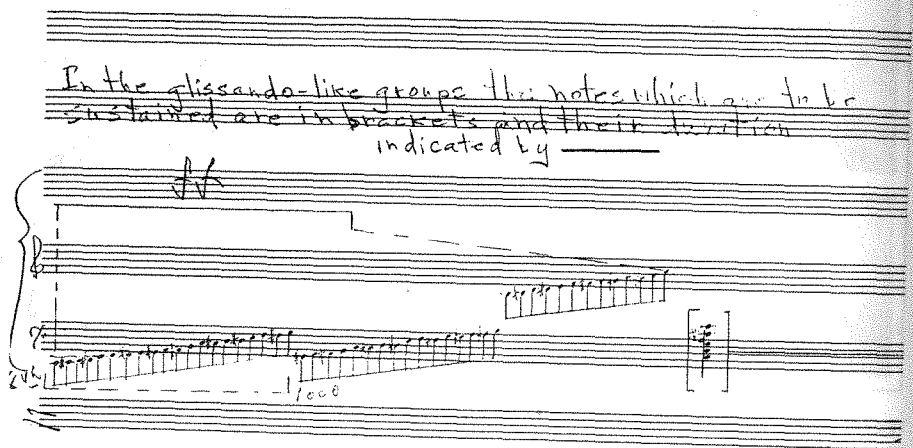 In the glissando-like groups the notes which are to be
sustained are in brackets and their duration
indicated by
ff
8vb
loco